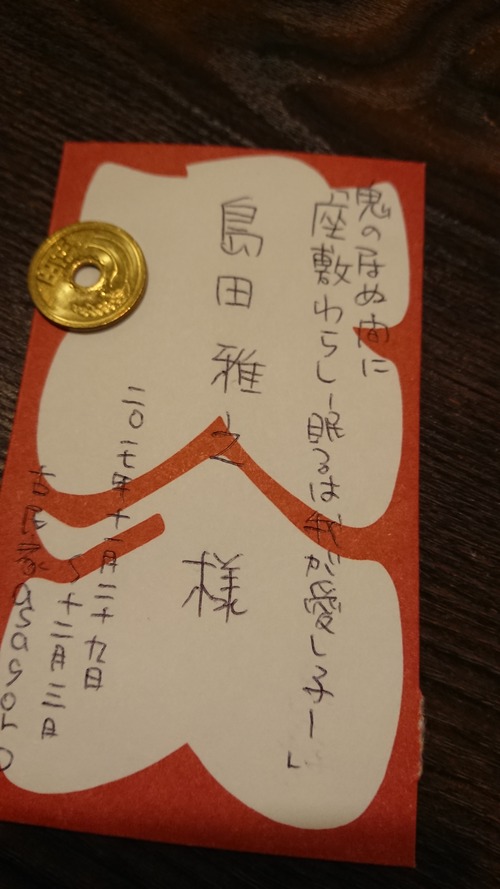 鬼の居ぬ間に
「座敷わらし-眠るは我が愛し子-」
島田雅之 様
二〇一七年十一月二十九日
〜十二月三日
古民家asagoro